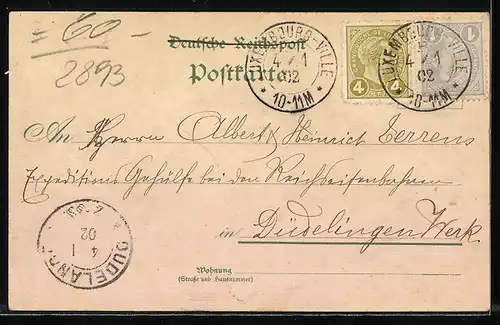 = 60 -
2893
Deutsche Reichspost
Postkarte
LUXEMBOURG-VILLE
4 1
02
* 10-11M *
4
4
LUXEMBOURG-VILLE
4 1
02
* 10-11M *
1
1
An Herrn Albert Heinrich Terrens
Expeditions Gehülfe bei den Reichseisenbahnen
in Düdelingen Werk
DUDELANGE
4 1
02
Wohnung
(Straße und Hausnummer)